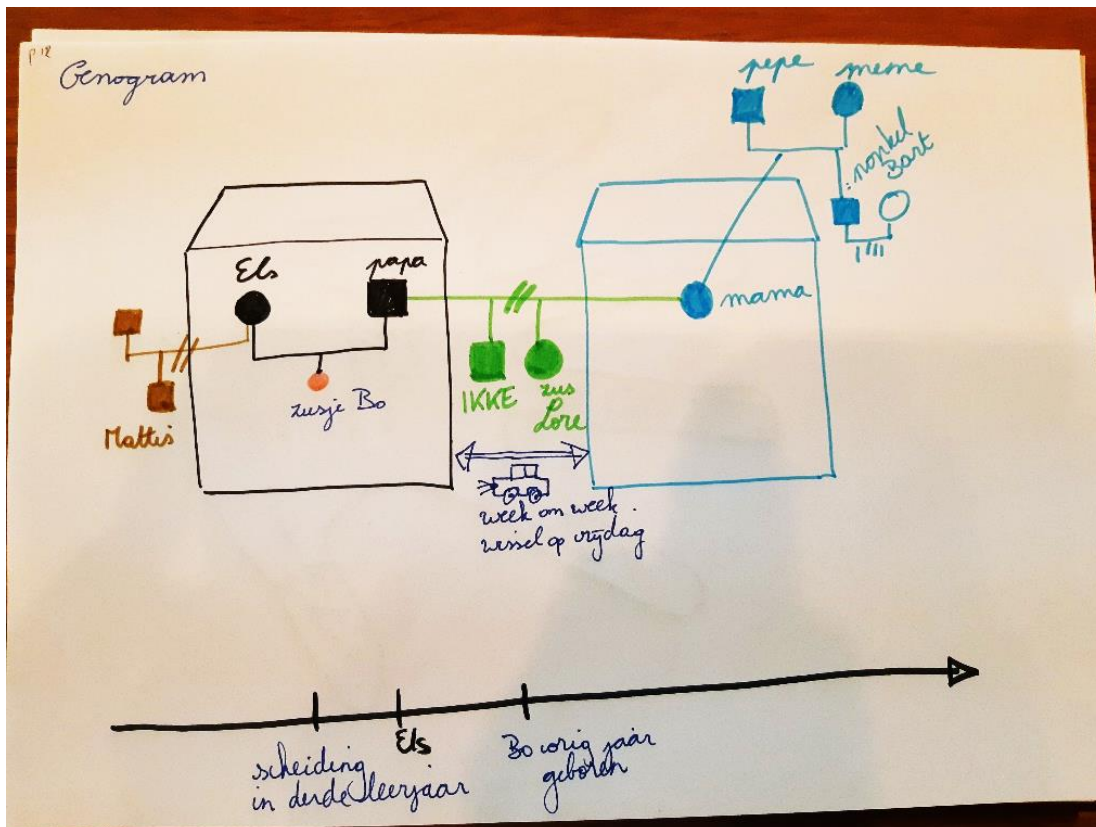 p 12
Genogram
pepe
meme
: nonkel
Bart
Els
papa
mama
zusje Bo
IKKE
zus
Lore
Mattis
week om week.
wissel op vrijdag
Els
scheiding
in derde leerjaar
Bo vorig jaar
geboren